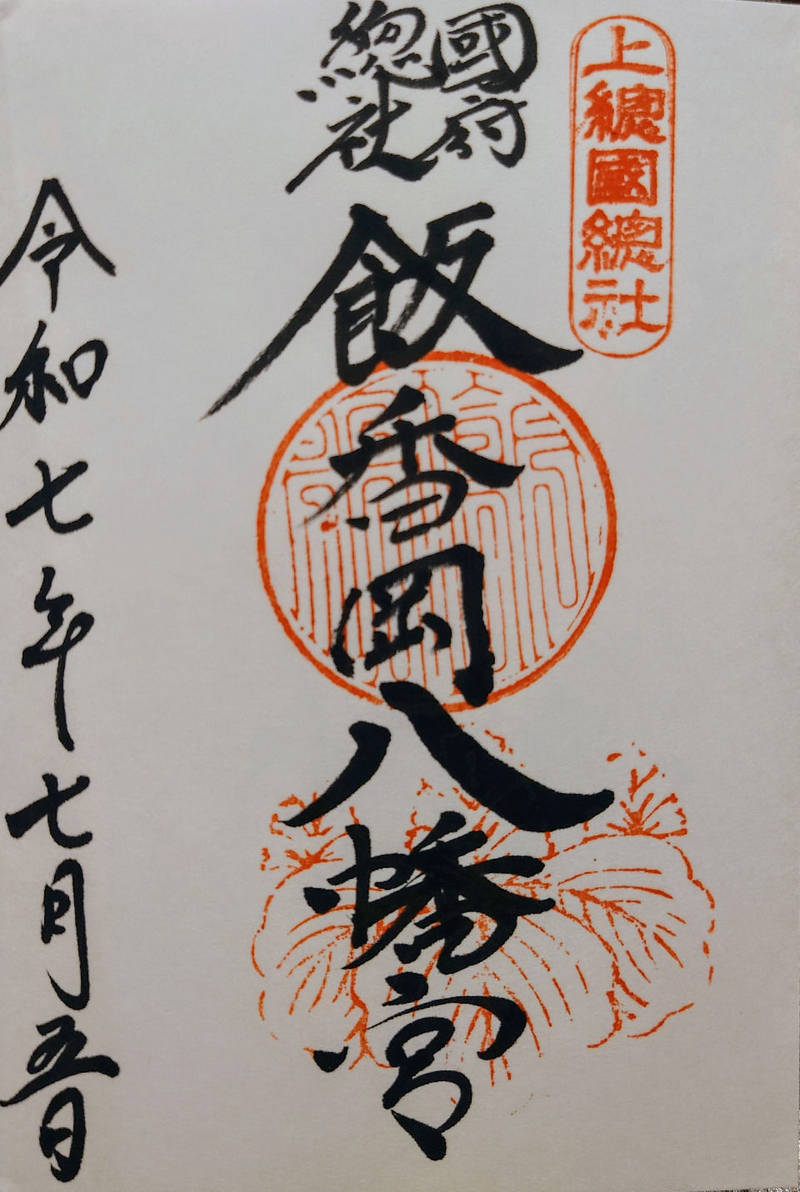 上總國總社
國府
總社
飯香岡八幡宮
令和七年七月五日